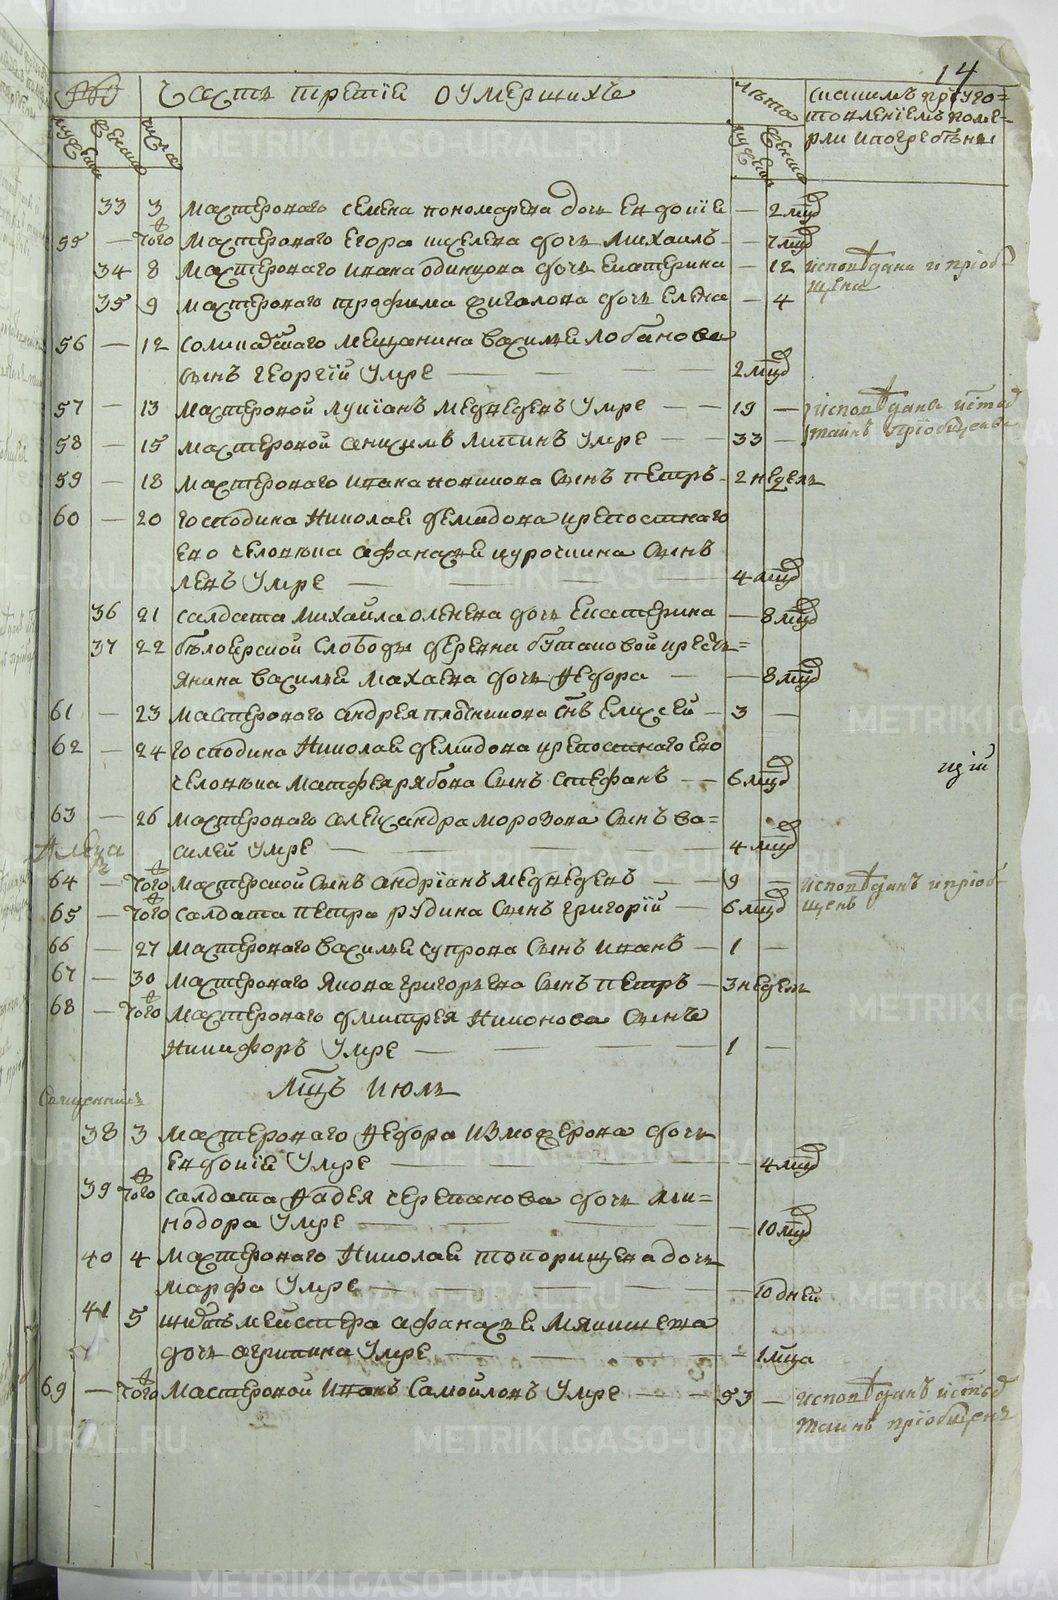 14
Часть третїя оумершихъ
лѣта
съ какимъ прїуго=
товленїемъ поме=
рли и погребѣны
мужеска
женска
число
мужеска
женска
33 3 мастероваго семена пономарева дочь Евдокїя — 2 мцд
55 — того мастероваго Егора шевелева дочь Михаилъ — 7 мцд
34 8 мастероваго ивана одинцова дочь Екатерина — 12 исповѣдана и прїоб=
щена
35 9 мастероваго трофима жигалова дочь Елена — 4
56 — 12 соликамскаго мещанина василья лобанова
сынъ георгїй Умре — 2 мцд
57 — 13 мастеровой лукїанъ медведевъ Умре — 19 — исповѣданы и с. т.
58 — 15 мастеровой Умре — 33 — таинъ прїобщены
59 — 18 мастероваго ивана новикова сынъ петръ — 2 недель
60 — 20 господина Николая демидова крепостнаго
ево человѣка афанасья курочкина сынъ
левъ Умре — 4 мцд
36 21 салдата михайла оленева дочь Екатерина — 8 мцд
37 22 бѣлоярской слободы деревни бутаковой кресть=
янина василья махаева дочь Федора — 8 мцд
61 — 23 мастероваго андрея плотникова снъ Елисей — 3 —
62 — 24 господина Николая демидова крепостнаго ево
человѣка матфея рябова сынъ стефанъ — 6 мцд
63 — 26 мастероваго александра морозова сынъ ва=
силей Умре — 4 мцд
64 — того мастерской сынъ андрїанъ медведевъ — 9 — исповѣданъ и прїоб=
65 — того салдата петра рудина сынъ григорїй — 6 мцд щенъ
66 — 27 мастероваго василья супрова сынъ иванъ — 1 —
67 — 30 мастероваго якова григорьева сынъ петръ — 3 недель
68 — того мастероваго дмитрея никонова сынъ
Никифоръ Умре — 1 —
мцъ июль
Священникъ
38 3 мастероваго Федора измоденова дочь
Евдокїя Умре — 4 мцд
39 того салдата фадея черепанова дочь ми=
нодора Умре — 10 мцд
40 4 мастероваго Николая топорищева дочь
марфа Умре — 10 дней
41 5 афанасья мякишева
дочь агрипина Умре — 1 мца
69 — того мастеровой Иванъ Самойловъ Умре — 53 — исповѣданъ и с. т.
таинъ прїобщенъ
METRIKI.GASO-URAL.RU